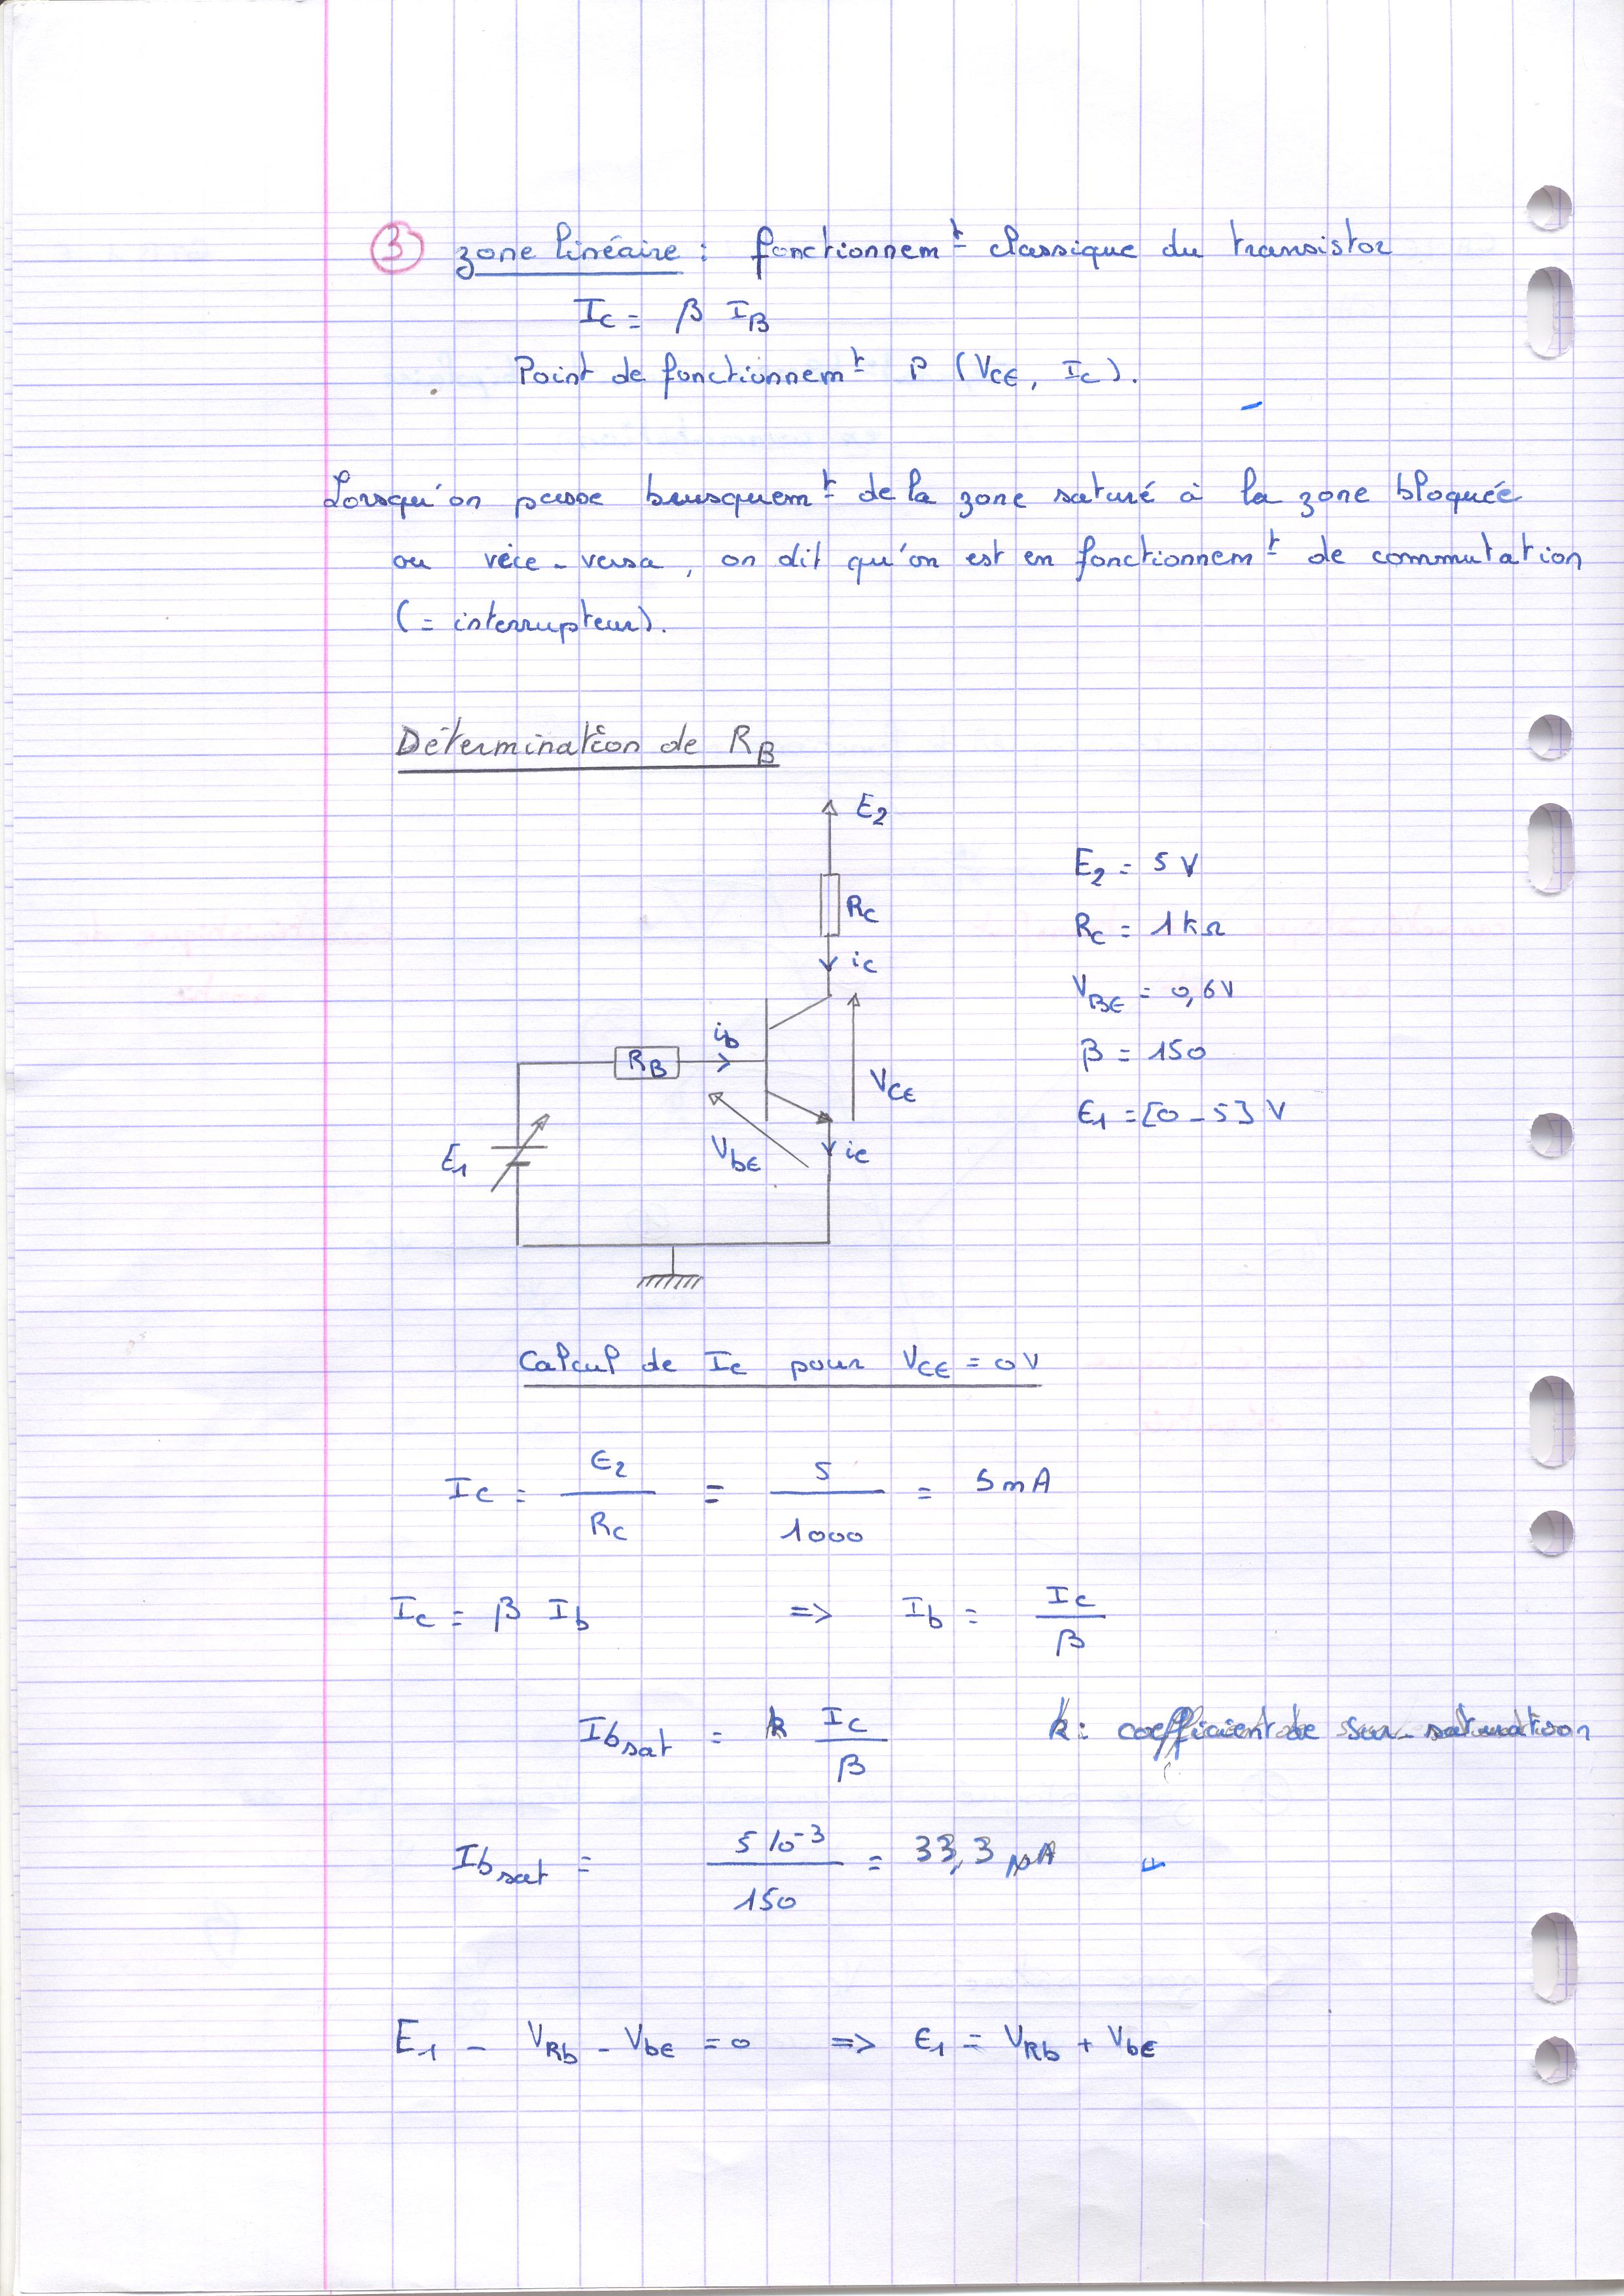 3 zone linéaire : fonctionnemt classique du transistor
Ic = β IB
Point de fonctionnemt P (VCE, Ic).
Lorsqu'on passe brusquemt de la zone saturé à la zone bloquée
ou vèce-versa, on dit qu'on est en fonctionnemt de commutation
(= interrupteur).
Détermination de RB
E2
E2 = 5 V
Rc
Rc = 1kΩ
ic
VBE = 0,6V
ib
β = 150
RB
VCE
E1 = [0 - 5] V
E1
Vbe
ie
Calcul de Ic pour VCE = 0V
Ic = E2 / Rc = 5 / 1000 = 5mA
Ic = β Ib => Ib = Ic / β
Ibsat = k Ic / β k: coefficient de sur-saturation
Ibsat = 5 10-3 / 150 = 33,3 µA
E1 - VRb - Vbe = 0 => E1 = VRb + Vbe